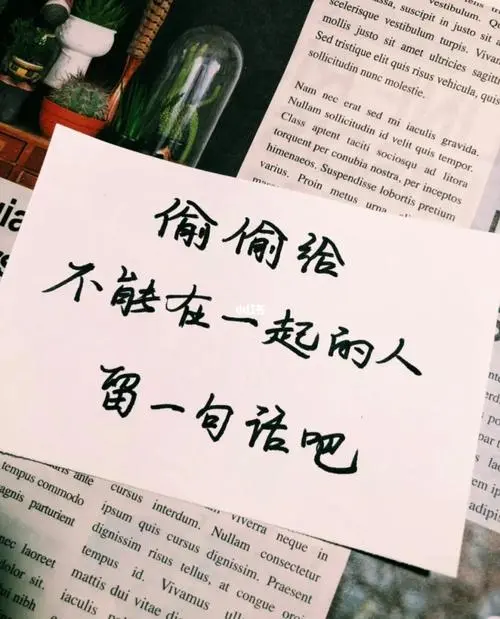 suscipit in justo sit am
scelerisque vestibulum turpis. Vivam
mollis justo sit amet ultricies sagitti
Sed tristique elit quis risus vehicula, qui
sollicitudin nunc molestie.
Nam nec erat sed mi iaculis gravida.
Nullam sollicitudin id velit quis tempor.
Class aptent taciti sociosqu ad litora
torquent per conubia nostra, per inceptos
himenaeos. Suspendisse lobortis pretium
varius. Proin metus urna
偷偷给
不能在一起的人
留一句话吧
小红书
tempus commodo
agnis parturient
nec laoreet
dolor sit.
ui nibh
ante
cursus interdum. Nullam consectetur
ipsum quis cursus dignissim. Praesent
dignissim risus tellus, at congue
tempus id. Vivamus
mattis dui vitae
iaculis
viverra neque in